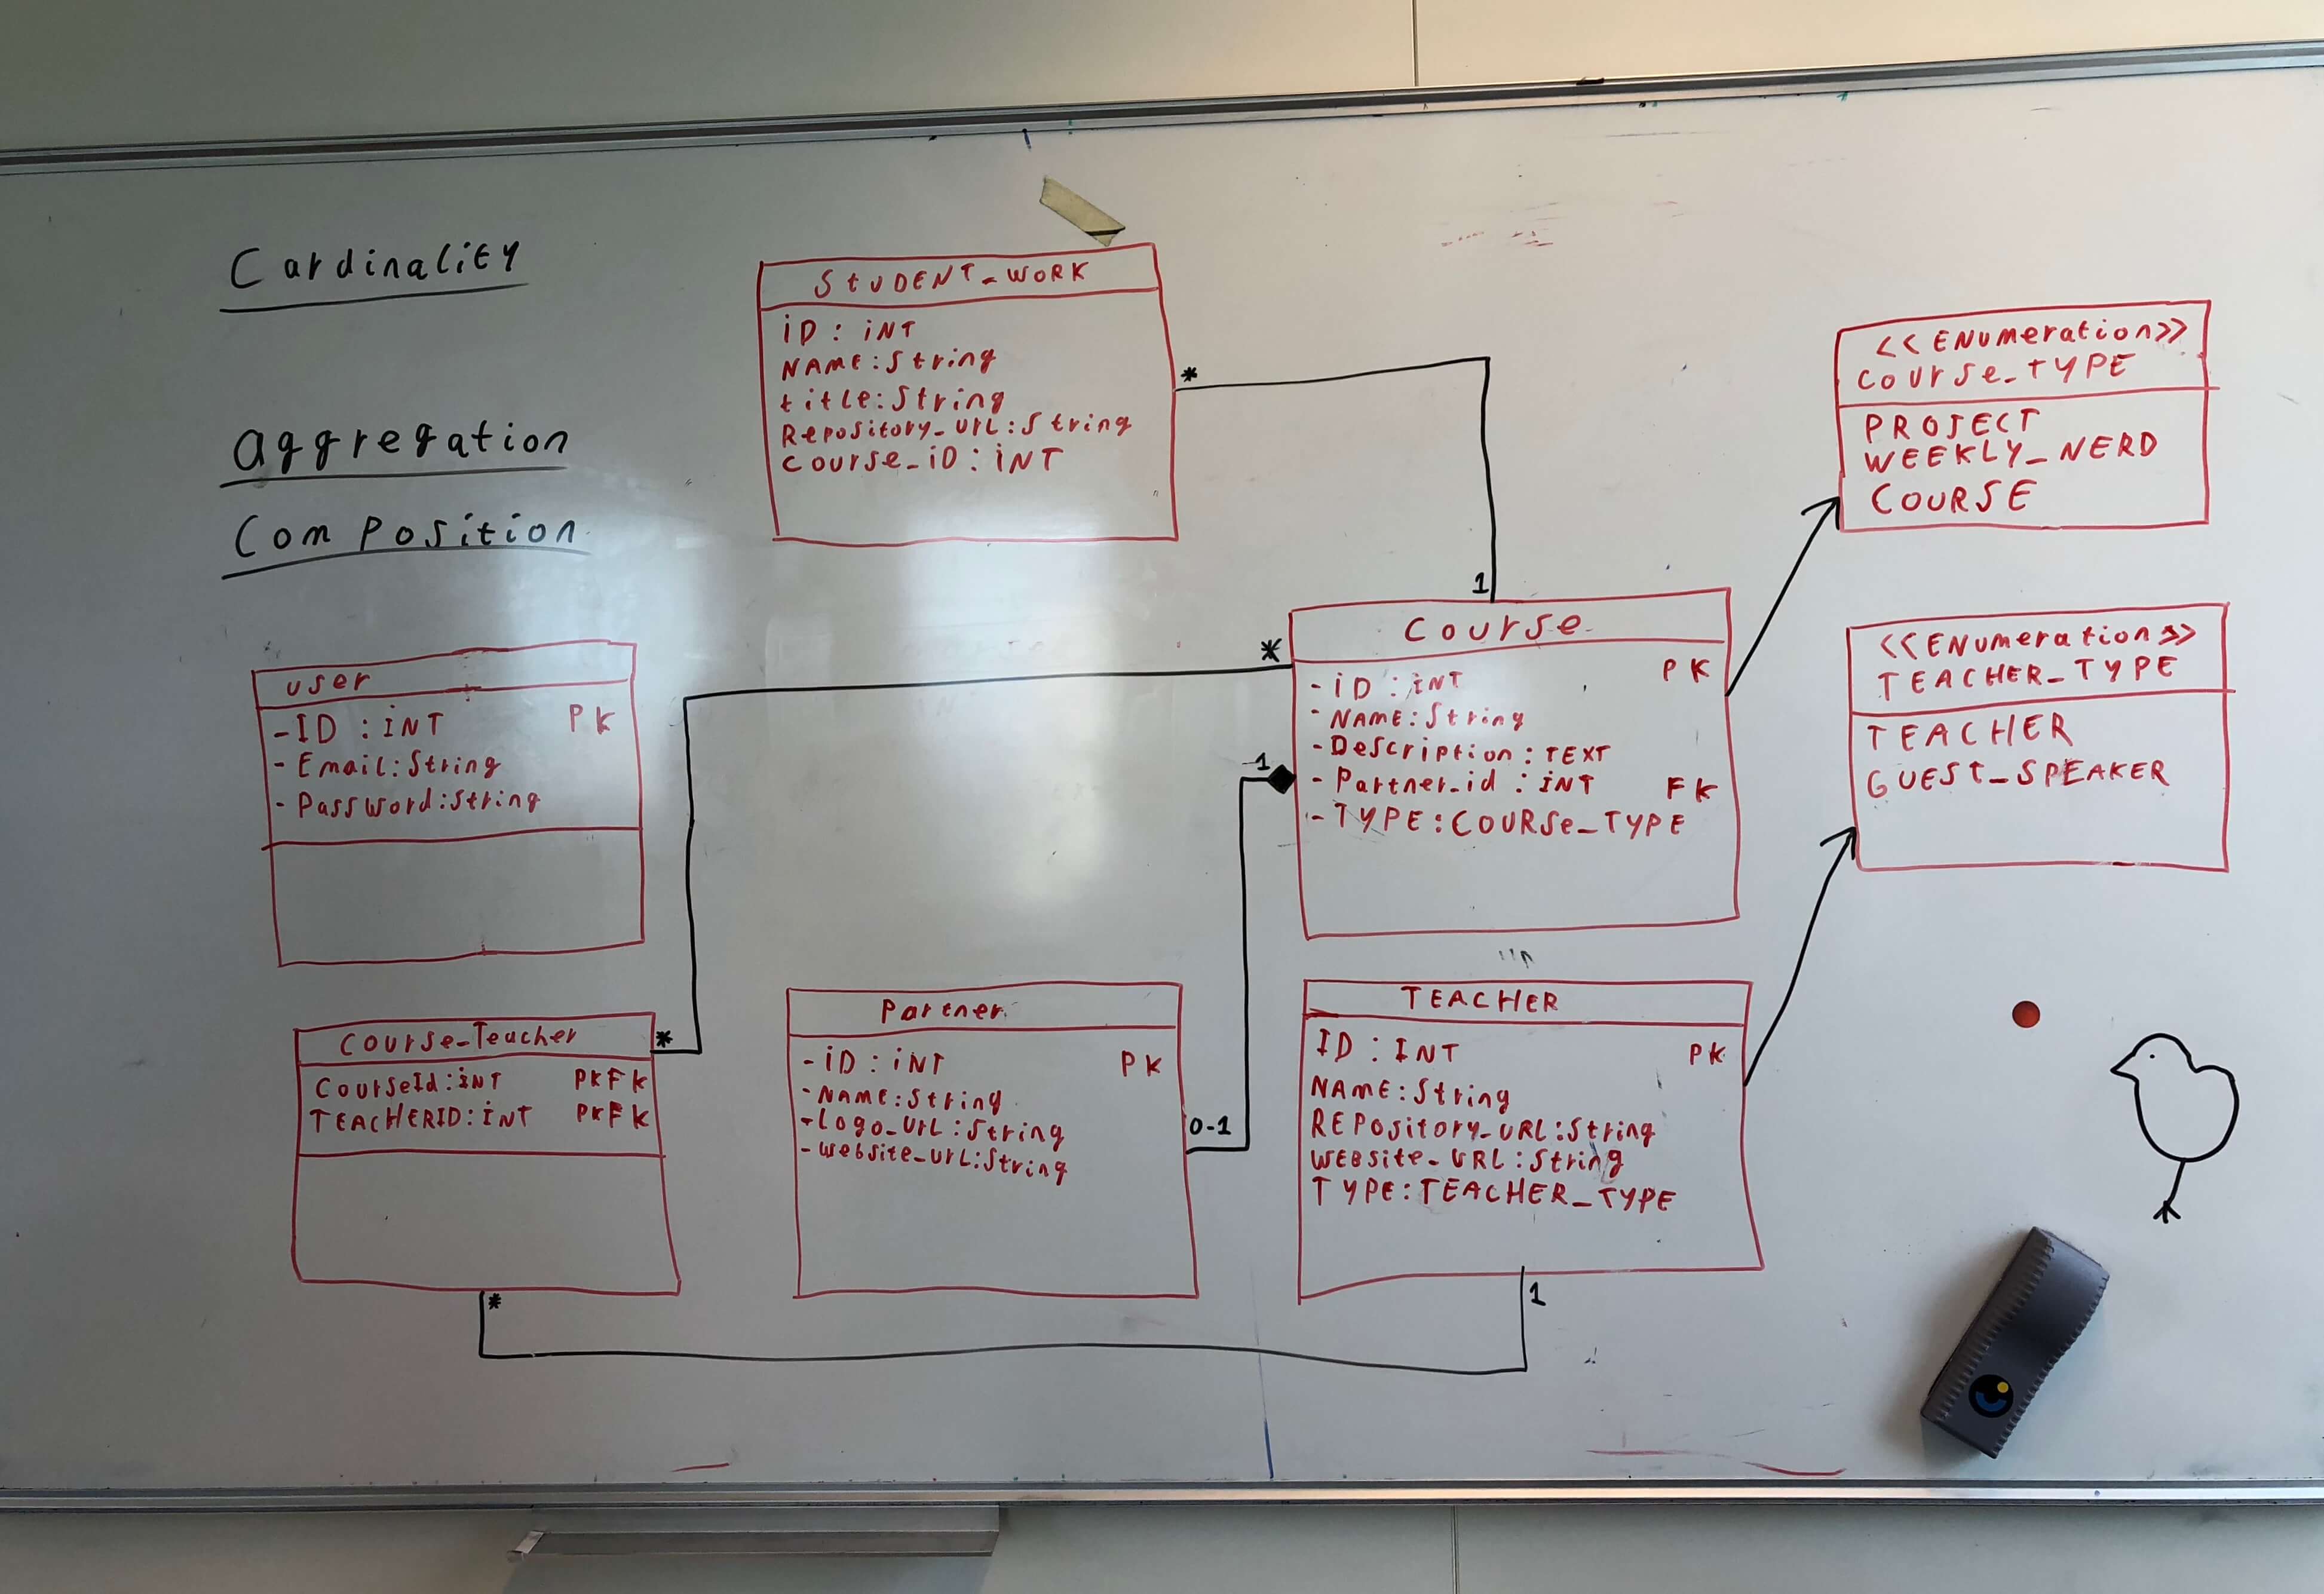 Cardinality
Aggregation
Composition
STUDENT_WORK
ID : INT
NAME:String
title:String
Repository_UrL:String
Course_iD : INT
<<ENumeration>>
Course_TYPE
PROJECT
WEEKLY_NERD
COURSE
user
-ID : INT PK
- Email:String
- Password:String
1
*
*
Course
PK
- iD : INT
- NAME:String
- Description : TEXT
- Partner_id : INT FK
- TYPE:COURSe_TYPE
1
<<ENumeration>>
TEACHER_TYPE
TEACHER
GUEST_SPEAKER
Course_Teacher
CourseId:INT PKFK
TEACHERID:INT PKFK
*
*
Partner
- iD : iNT PK
- NAME:String
- Logo_UrL:String
- website_UrL:String
0-1
TEACHER
ID : INT PK
NAME:String
REPository_URL:String
WEBsite_URL:String
TYPE:TEACHER_TYPE
1